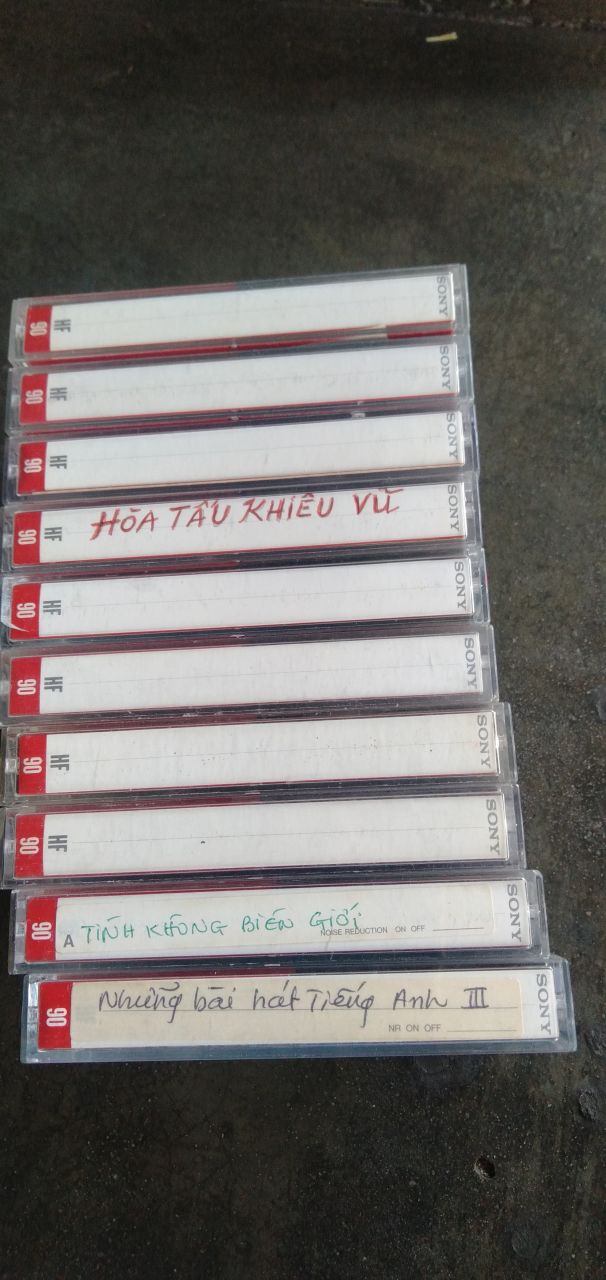 90 HF SONY
90 HF SONY
90 HF SONY
90 HF HÒA TẤU KHIÊU VŨ SONY
90 HF SONY
90 HF SONY
90 HF SONY
90 HF SONY
90 A TÌNH KHÔNG BIÊN GIỚI SONY
NOISE REDUCTION ON OFF
90 Những bài hát Tiếng Anh III SONY
NR ON OFF